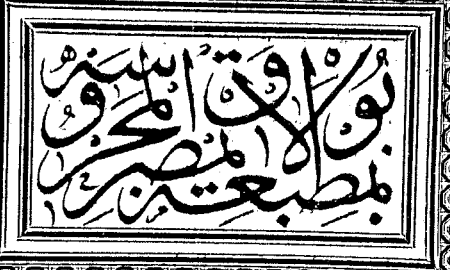 بمطبعة بولاق بمصر المحروسة